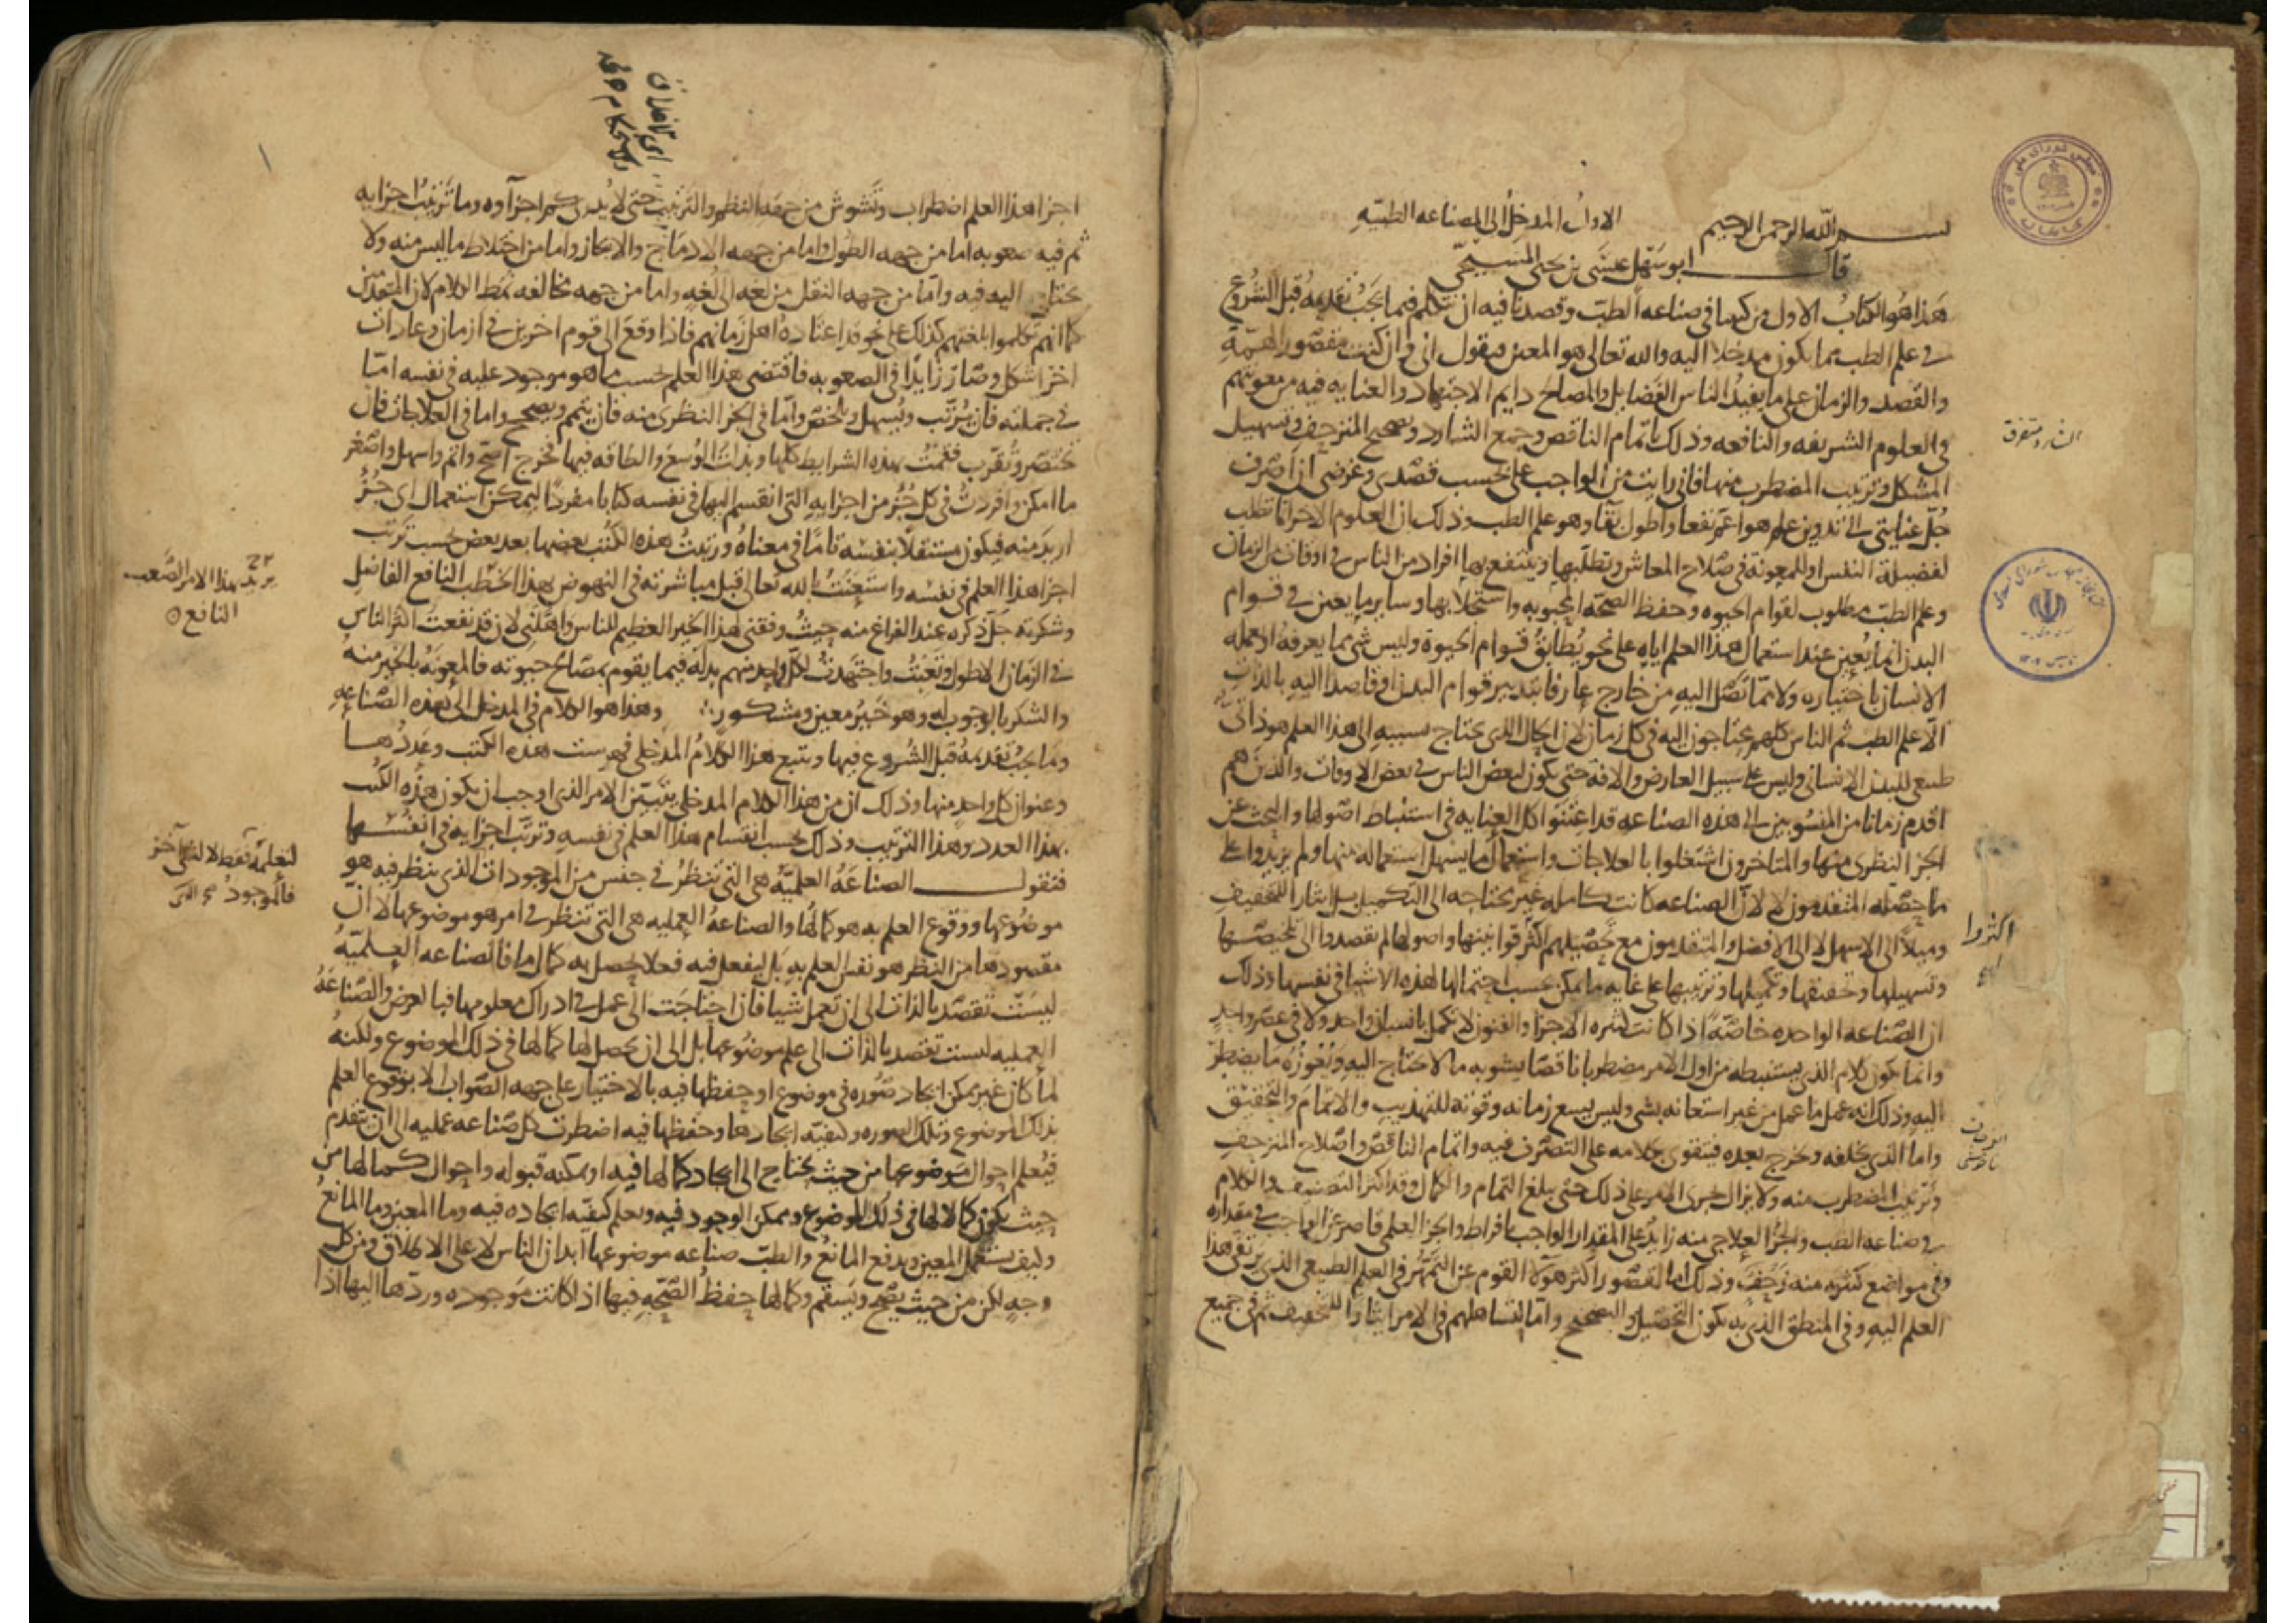 بسم الله الرحمن الرحيم الاول المدخل الى الصناعه الطبيه
قال ابو سهل عيسى بن يحيى المسيحى
هذا هو الكتاب الاول من كتبنا فى صناعه الطب وقصدنا فيه ان نتكلم فيما يجب تقديمه قبل الشروع
فى علم الطب مما يكون مدخلا اليه والله تعالى هو المعين فيقول انى وان كنت مقصور الهمة
والقصد والزمان على ما يفيد الناس الفضايل والمصالح دايم الاجتهاد والعنايه فيه من معونتهم
فى العلوم الشريفه والنافعه وذلك باتمام الناقص وجمع الشارد وتصحيح المنزحف وتسهيل
المشكل وترتيب المضطرب منها فانى رايت من الواجب على بحسب قصدى وغرضى ان اصرف
جل عنايتى الى تدوين علم هو اعم نفعا واطول بقآ وهو علم الطب وذلك ان العلوم الاخر انما تطلب
لفضيلة النفس او للمعونة فى صلاح المعاش وتطلبها وينتفع بها افراد من الناس فى اوقات من الزمان
وعلم الطب مطلوب لقوام الحيوه وحفظ الصحه المحبوبه واستجلابها وساير ما يعين فى قوام
البدن انما يعين عند استعمال هذا العلم اياه على نحو يطابق قوام الحيوة وليس شى مما يعرفه او يعمله
الانسان باختياره ولا مما تصل اليه من خارج عارفا بتدبير قوام البدن او قاصدا اليه بالذات
الا علم الطب ثم الناس كلهم محتاجون اليه فى كل زمان لان الحال الذى يحتاج بسببه الى هذا العلم هو ذاتى
طبيعى للبدن الانسانى وليس على سبيل العارض والافة حتى يكون لبعض الناس فى بعض الاوقات والذين هم
اقدم زمانا من المنسوبين الى هذه الصناعه قد اعتنوا كل العنايه فى استنباط اصولها والبحث عن
الجز النظرى منها والمتاخرون اشتغلوا بالعلاجات واستعمال ما يسهل استعماله منها ولم يزيدوا على
ما حصله المتقدمون لا لان الصناعه كانت كامله غير محتاجه الى التكميل بل ايثارا للتخفيف
وميلا الى الاسهل لا الى الافضل والمتقدمون مع تحصيلهم اكثر قوانينها واصولها لم يقصدوا الى تلخيصها
وتسهيلها وتحقيقها وتكميلها وترتيبها على غايه ما يمكن بحسب احتمالها لهذه الاشيا فى نفسها وذلك
ان الصناعه الواحده خاصة اذا كانت كثيره الاجزا والفنون لا تكمل بانسان واحد ولا فى عصر واحد
وانما يكون كلام الذى يستنبطه من اول الامر مضطربا ناقصا يشوبه ما لا يحتاج اليه ويعوزه ما يضطر
اليه وذلك انه عمل ما عمل من غير استعانه بشى وليس يسع زمانه وقوته للتهذيب والاتمام والتحقيق
واما الذى يخلفه ويخرج بعده فيتقوى بكلامه على التصرف فيه واتمام الناقص واصلاح المنزحف
وترتيب المضطرب منه ولا يزال يجرى الامر على ذلك حتى يبلغ التمام والكمال وقد اكثر التصنيف والكلام
فى صناعه الطب والجز العلاجى منه زايد على المقدار الواجب بافراط والجز العلمى قاصر عن الواجب فى مقداره
وفى مواضع كثيره منه زحف وذلك اما لقصور اكثر هولا القوم عن التمهر فى العلم الطبيعى الذى يرتقى هذا
العلم اليه وفى المنطق الذى به يكون التحصيل والتصحيح واما لتساهلهم فى الامر ايثارا للتخفيف ثم فى جميع
الشارد متفرق
اكثروا
اجزا هذا العلم اضطراب وتشوش من جهه النظم والترتيب حتى لا يدرى كم اجزآوه وما ترتيب اجزايه
ثم فيه صعوبه اما من جهه الطول واما من جهه الادماج والايجاز واما من اختلاط ما ليس منه ولا
يحتاج اليه فيه واما من جهه النقل من لغه الى لغه واما من جهه مخالفه نمط الكلام لان المتقدمين
كما انهم تكلموا بلغتهم كذلك على نحو قد اعتاده اهل زمانهم فاذا وقع الى قوم اخرين فى ازمان وعادات
اخر اشكل وصار زايدا فى الصعوبه فاقتضى هذا العلم حسب ما هو موجود عليه فى نفسه اما
فى جملته فان يرتب ويسهل ويلخص واما فى الجز النظرى منه فان يتمم ويصحح واما فى العلاجات فان
تختصر وتقرب فقمت بهذه الشرايط كلها وبذلت الوسع والطاقه فيها فخرج اصح واتم واسهل واصغر
ما امكن وافردت فى كل جز من اجزايه التى انقسم اليها فى نفسه كتابا مفردا ليمكن استعمال اى جز
اريد منه فيكون مستقلا بنفسه تاما فى معناه ورتبت هذه الكتب بعضها بعد بعض حسب ترتب
اجزا هذا العلم فى نفسه واستعنت بالله تعالى قبل مباشرته فى النهوض بهذا الخطب النافع الفاضل
وشكرته جل ذكره عند الفراغ منه حيث وفقنى لهذا الخير العظيم للناس واهلنى لان قد نفعت اكثر الناس
فى الزمان الاطول وتعبت واجتهدت لكل واحد منهم بدله فيما يقوم بمصالح حيوته فالمعونة بالخير منه
والشكر بالوجوب له وهو خير معين ومشكور وهذا هو الكلام فى المدخل الى هذه الصناعه
وما يجب تقديمه قبل الشروع فيها ويتبع هذا الكلام المدخلى فهرست هذه الكتب وعددها
وعنوان كل واحد منها وذلك ان من هذا الكلام المدخلى يتبين الامر الذى اوجب ان يكون هذه الكتب
بهذا العدد وهذا الترتيب وذلك بحسب انقسام هذا العلم فى نفسه وترتب اجزايه فى انفسها
فنقول الصناعه العلميه هى التى تنظر فى جنس من الموجودات الذى ينظر فيه هو
موضوعها ووقوع العلم به هو كمالها والصناعه العمليه هى التى تنظر فى امر هو موضوعها لا ان
مقصودها من النظر هو نفس العلم به بل ليفعل فيه فعلا يحصل به كمال ما فالصناعه العلميه
ليست تقصد بالذات الى ان تعمل شيا فان احتاجت الى عمل فى ادراك معلومها فبالعرض والصناعه
العمليه ليست تقصد بالذات الى علم موضوعها بل الى ان يحصل لها كمالها فى ذلك الموضوع ولكنه
لما كان غير ممكن ايجاد صوره فى موضوع او حفظها فيه بالاختيار على جهه الصواب الا بوقوع العلم
بذلك الموضوع وتلك الصوره وكيفيه ايجادها وحفظها فيه اضطرت كل صناعه عمليه الى ان تتقدم
فيعلم احوال موضوعها من حيث يحتاج الى ايجاد كمالها فيه او يمكنه قبوله واحوال كمالها من
حيث يكون كمالا لها فى ذلك الموضوع وممكن الوجود فيه ويعلم كيفيه ايجاده فيه وما المعين وما المانع
وكيف يستعمل المعين ويدفع المانع والطب صناعه موضوعها ابدان الناس لا على الاطلاق ومن كل
وجه لكن من حيث يصح ويسقم وكمالها حفظ الصحه فيها اذا كانت موجوده وردها اليها اذا
يريد بهذا الامر الصعب
النافع
لتعلمه فقط لا لشى آخر